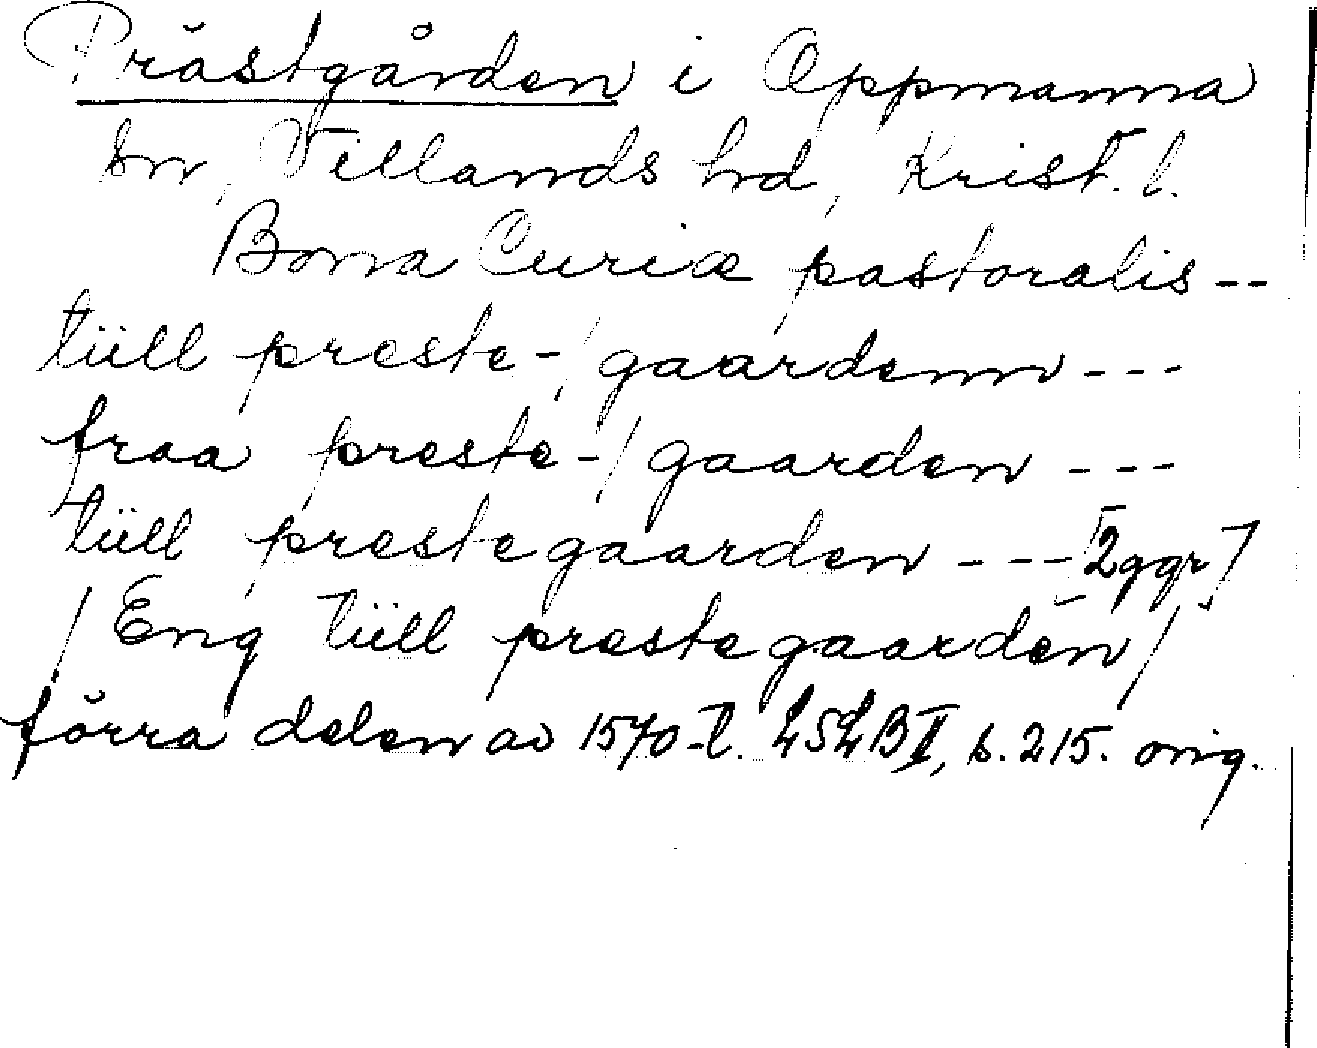 Prästgården i Oppmanna
sn, Villands hd, Krist. l.
Bona Curiæ pastoralis --
tüll preste-/gaardenn ---
fraa preste-/gaarden ---
tüll prestegaarden --- [2ggr]
/Eng tüll prestegaarden/
förra delen av 1570-t. LSLB II, s. 215. orig.